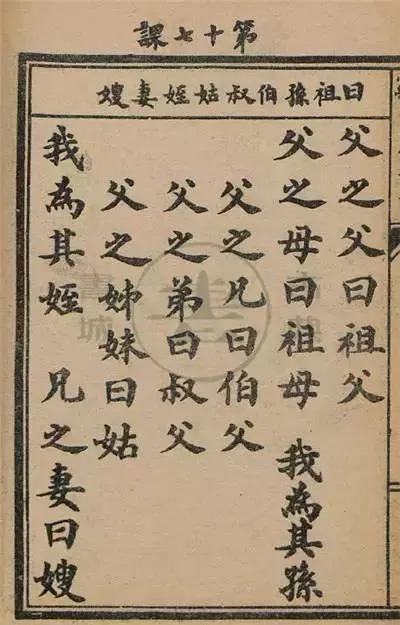 第十七課
曰祖孫伯叔姑姪妻嫂
父之父曰祖父
父之母曰祖母 我為其孫
父之兄曰伯父
父之弟曰叔父
父之姊妹曰姑
我為其姪 兄之妻曰嫂
書城